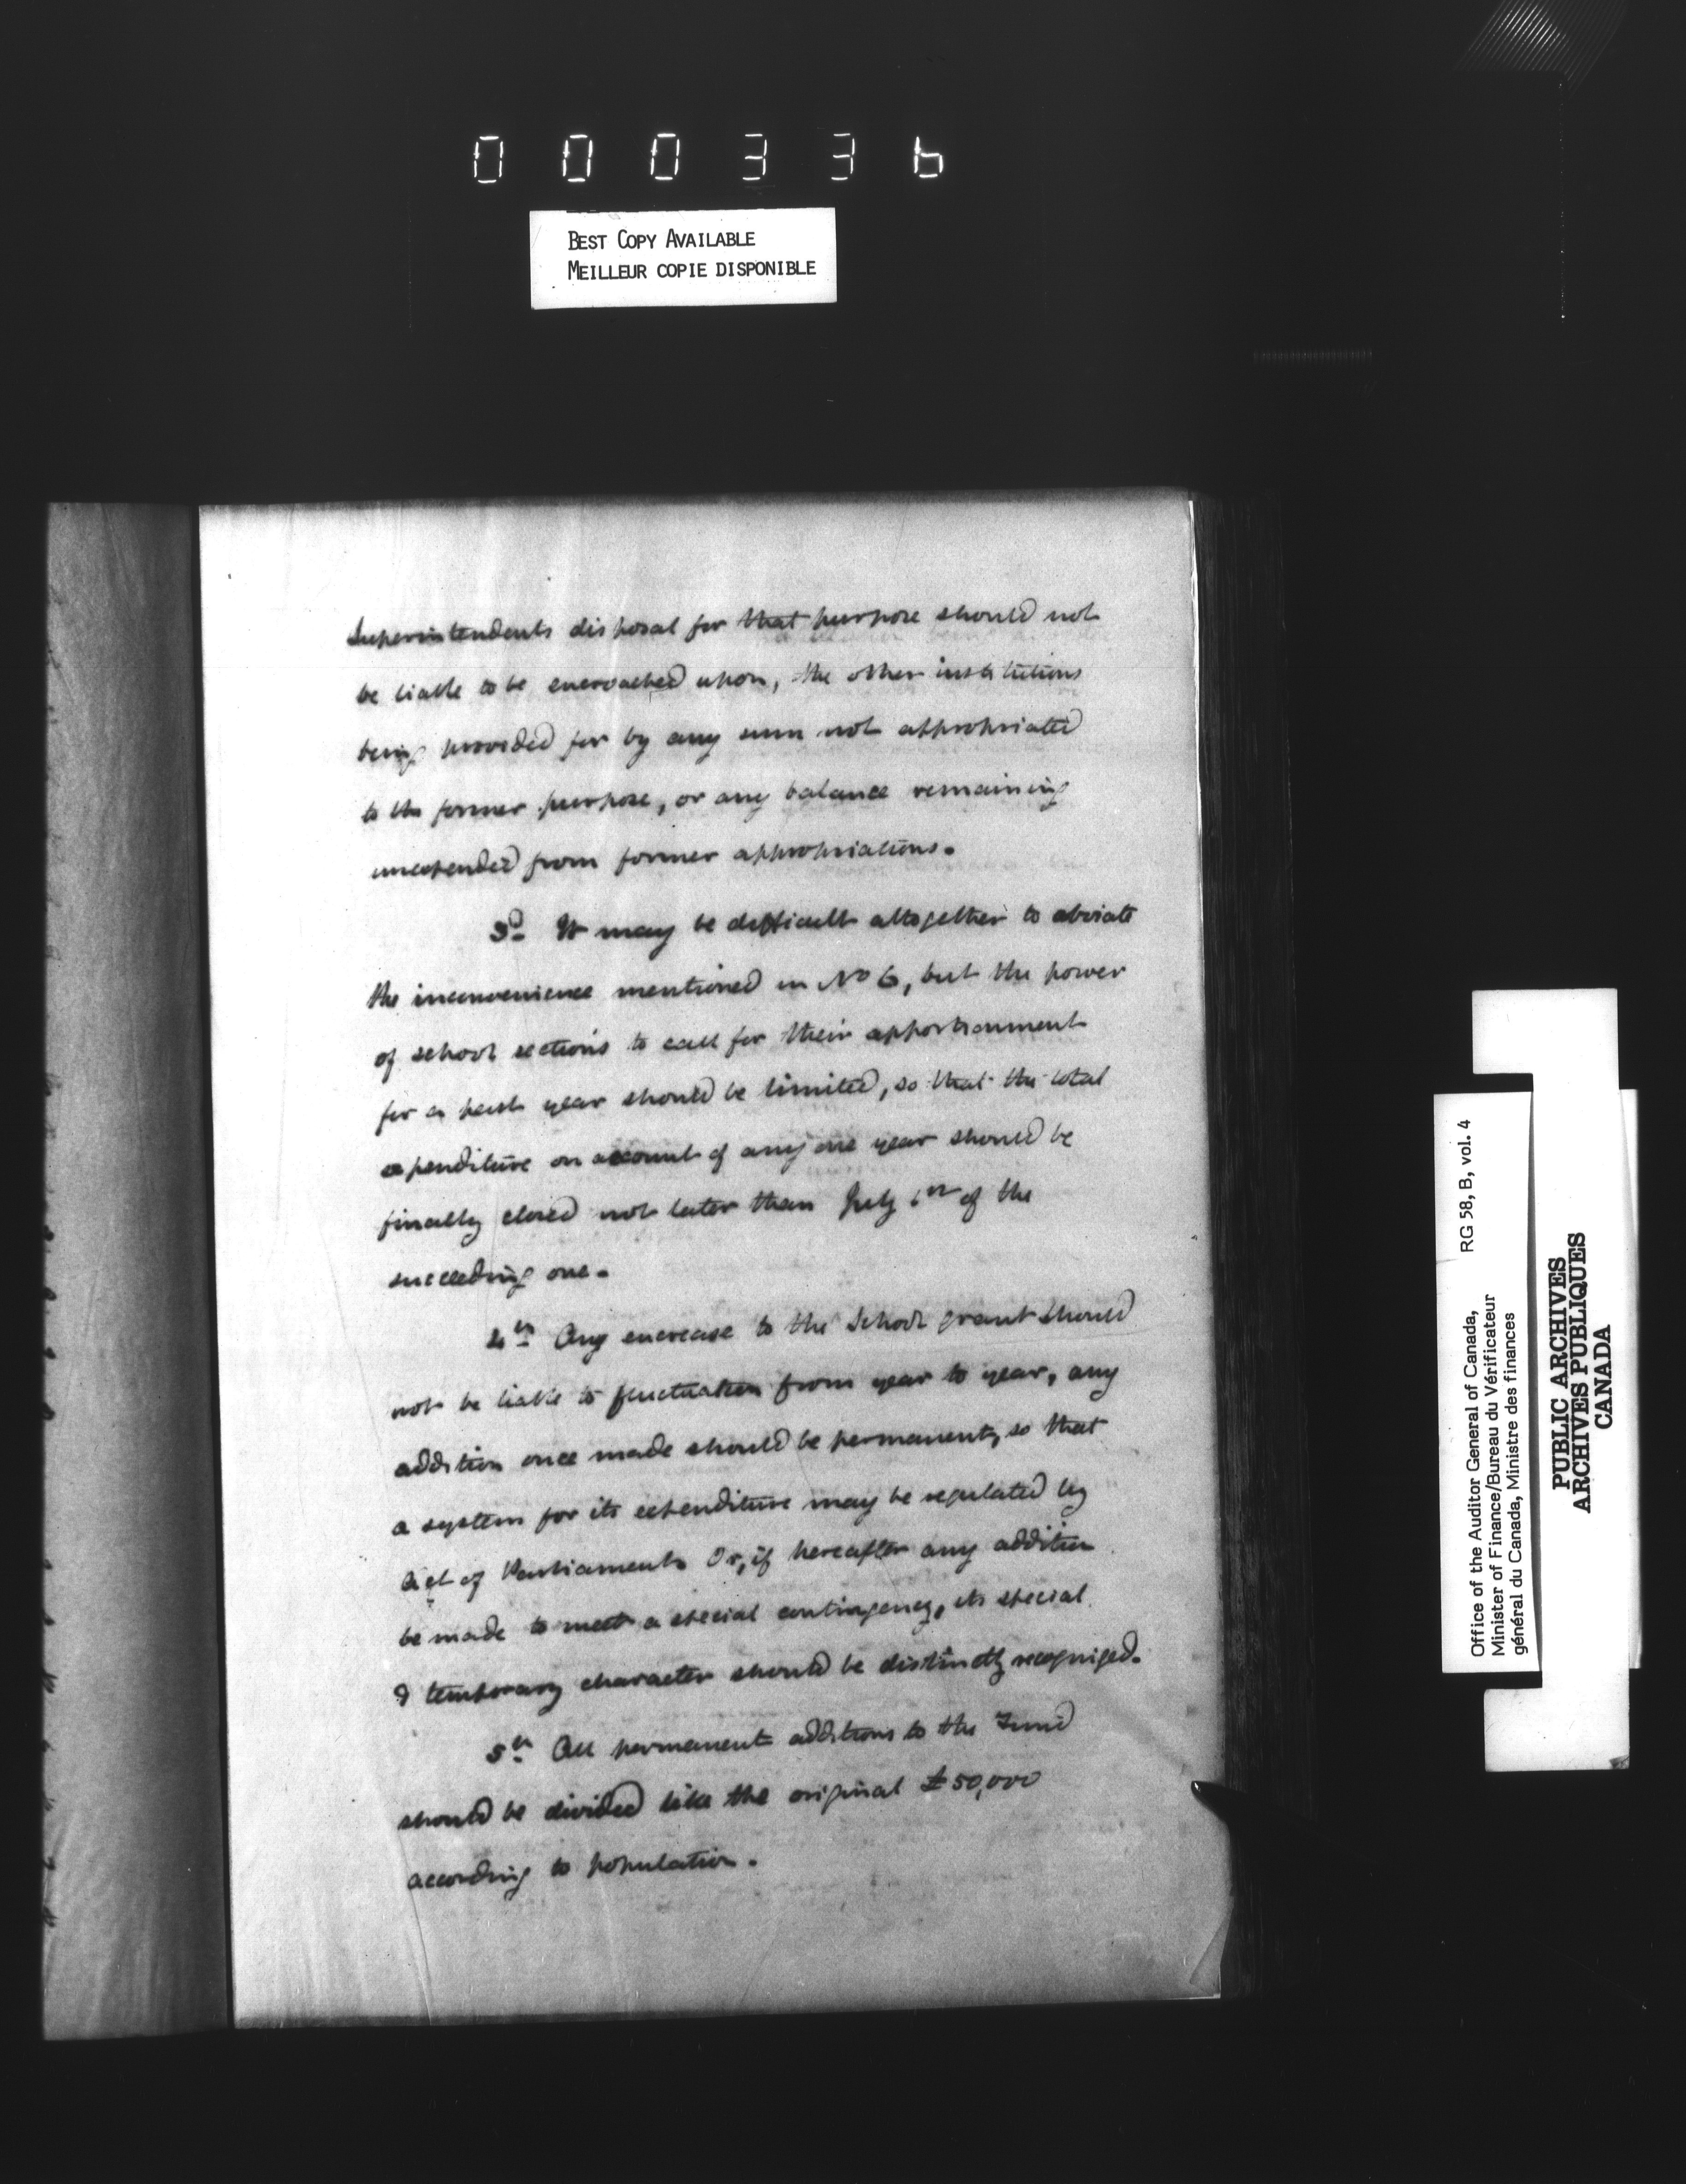 000336
BEST COPY AVAILABLE
MEILLEUR COPIE DISPONIBLE
Superintendents disposal for that purpose should not
be liable to be encroached upon, the other institutions
being provided for by any sum not appropriated
to the former purpose, or any balance remaining
unexpended from former appropriations.
3d It may be difficult altogether to obviate
the inconvenience mentioned in No 6, but the power
of school sections to call for their apportionment
for a past year should be limited, so that the total
expenditure on account of any one year should be
finally closed not later than July of the
succeeding one.
4th Any encrease to the School grant should
not be liable to fluctuation from year to year, any
addition once made should be permanent, so that
a system for its expenditure may be regulated by
Act of Parliament. Or, if hereafter any addition
be made to meet a special contingency, its special
& temporary character should be distinctly recognized.
5th All permanent additions to the Fund
should be divided like the original £50,000
according to population.
Office of the Auditor General of Canada, RG 58, B, vol. 4
Minister of Finance/Bureau du Vérificateur
général du Canada, Ministre des finances
PUBLIC ARCHIVES
ARCHIVES PUBLIQUES
CANADA